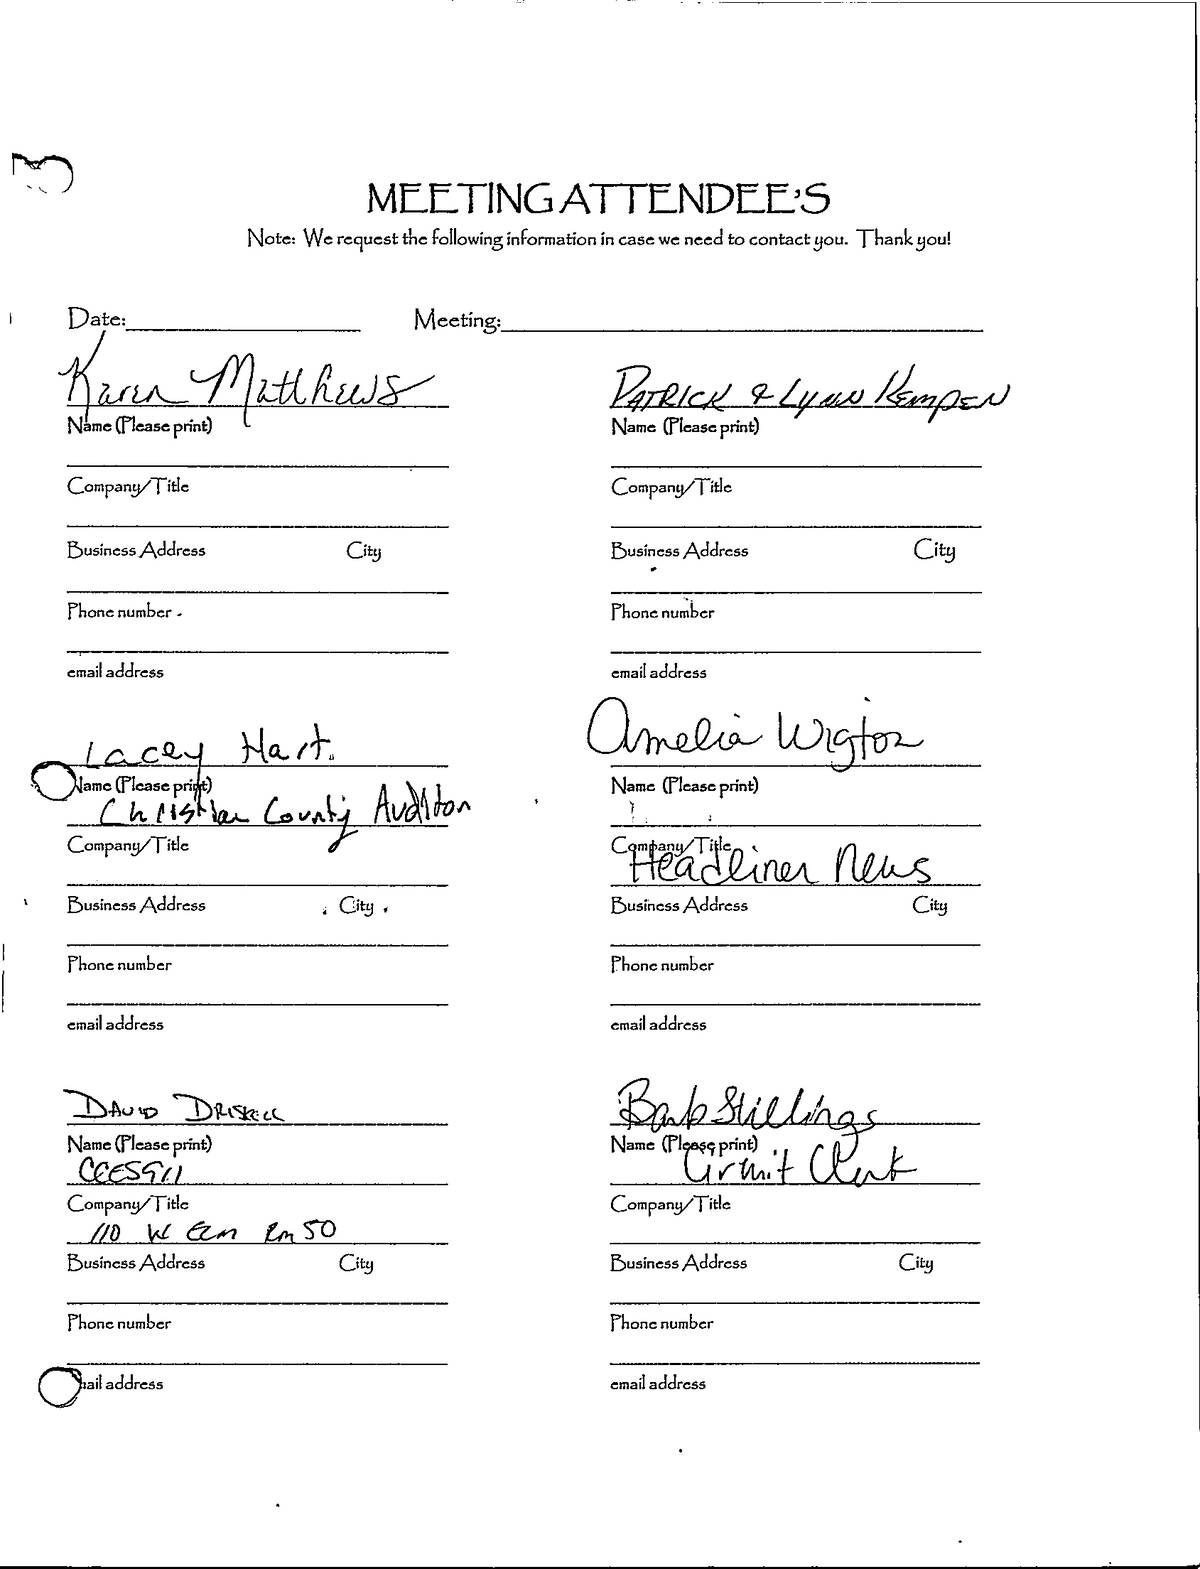 MEETING ATTENDEE'S
Note: We request the following information in case we need to contact you. Thank you!
Date: Meeting:
Karen Matthews
Name (Please print)
Company/Title
Business Address City
Phone number
email address
Patrick & Lynn Kempen
Name (Please print)
Company/Title
Business Address City
Phone number
email address
Lacey Hart
Name (Please print)
Christian County Auditor
Company/Title
Business Address City
Phone number
email address
Amelia Wigton
Name (Please print)
Company/Title
Headliner News
Business Address City
Phone number
email address
David Driskell
Name (Please print)
CCES911
Company/Title
110 W Elm Rm 50
Business Address City
Phone number
email address
Barb Stillings
Name (Please print)
Clerk
Company/Title
Business Address City
Phone number
email address